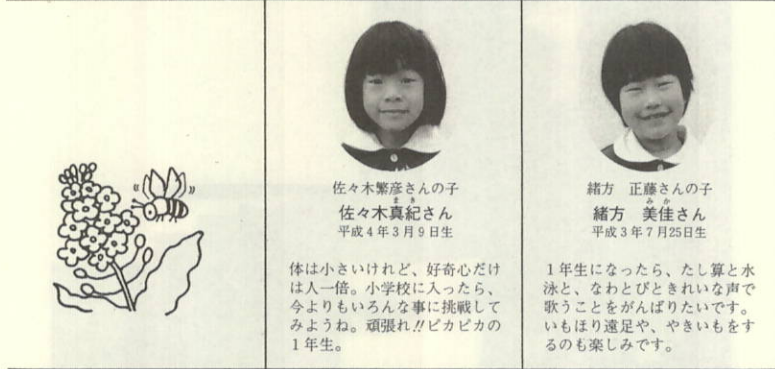 佐々木繁彦さんの子
まき
佐々木真紀さん
平成4年3月9日生
体は小さいけれど、好奇心だけ
は人一倍。小学校に入ったら、
今よりもいろんな事に挑戦して
みようね。頑張れ!!ピカピカの
1年生。
緒方 正藤さんの子
みか
緒方 美佳さん
平成3年7月25日生
1年生になったら、たし算と水
泳と、なわとびときれいな声で
歌うことをがんばりたいです。
いもほり遠足や、やきいもをす
るのも楽しみです。